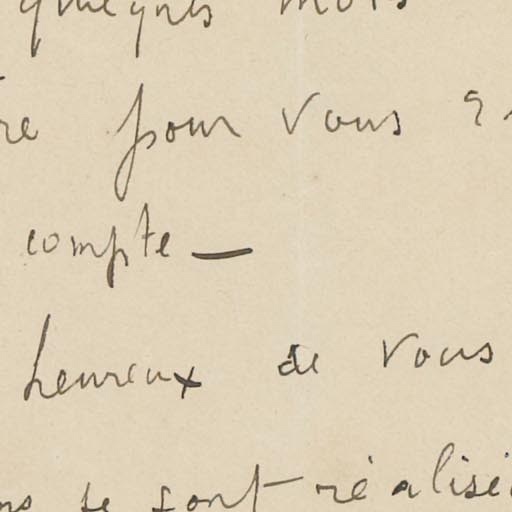 quelques mots
re pour vous
compte —
heureux de vous
se sont réalisé